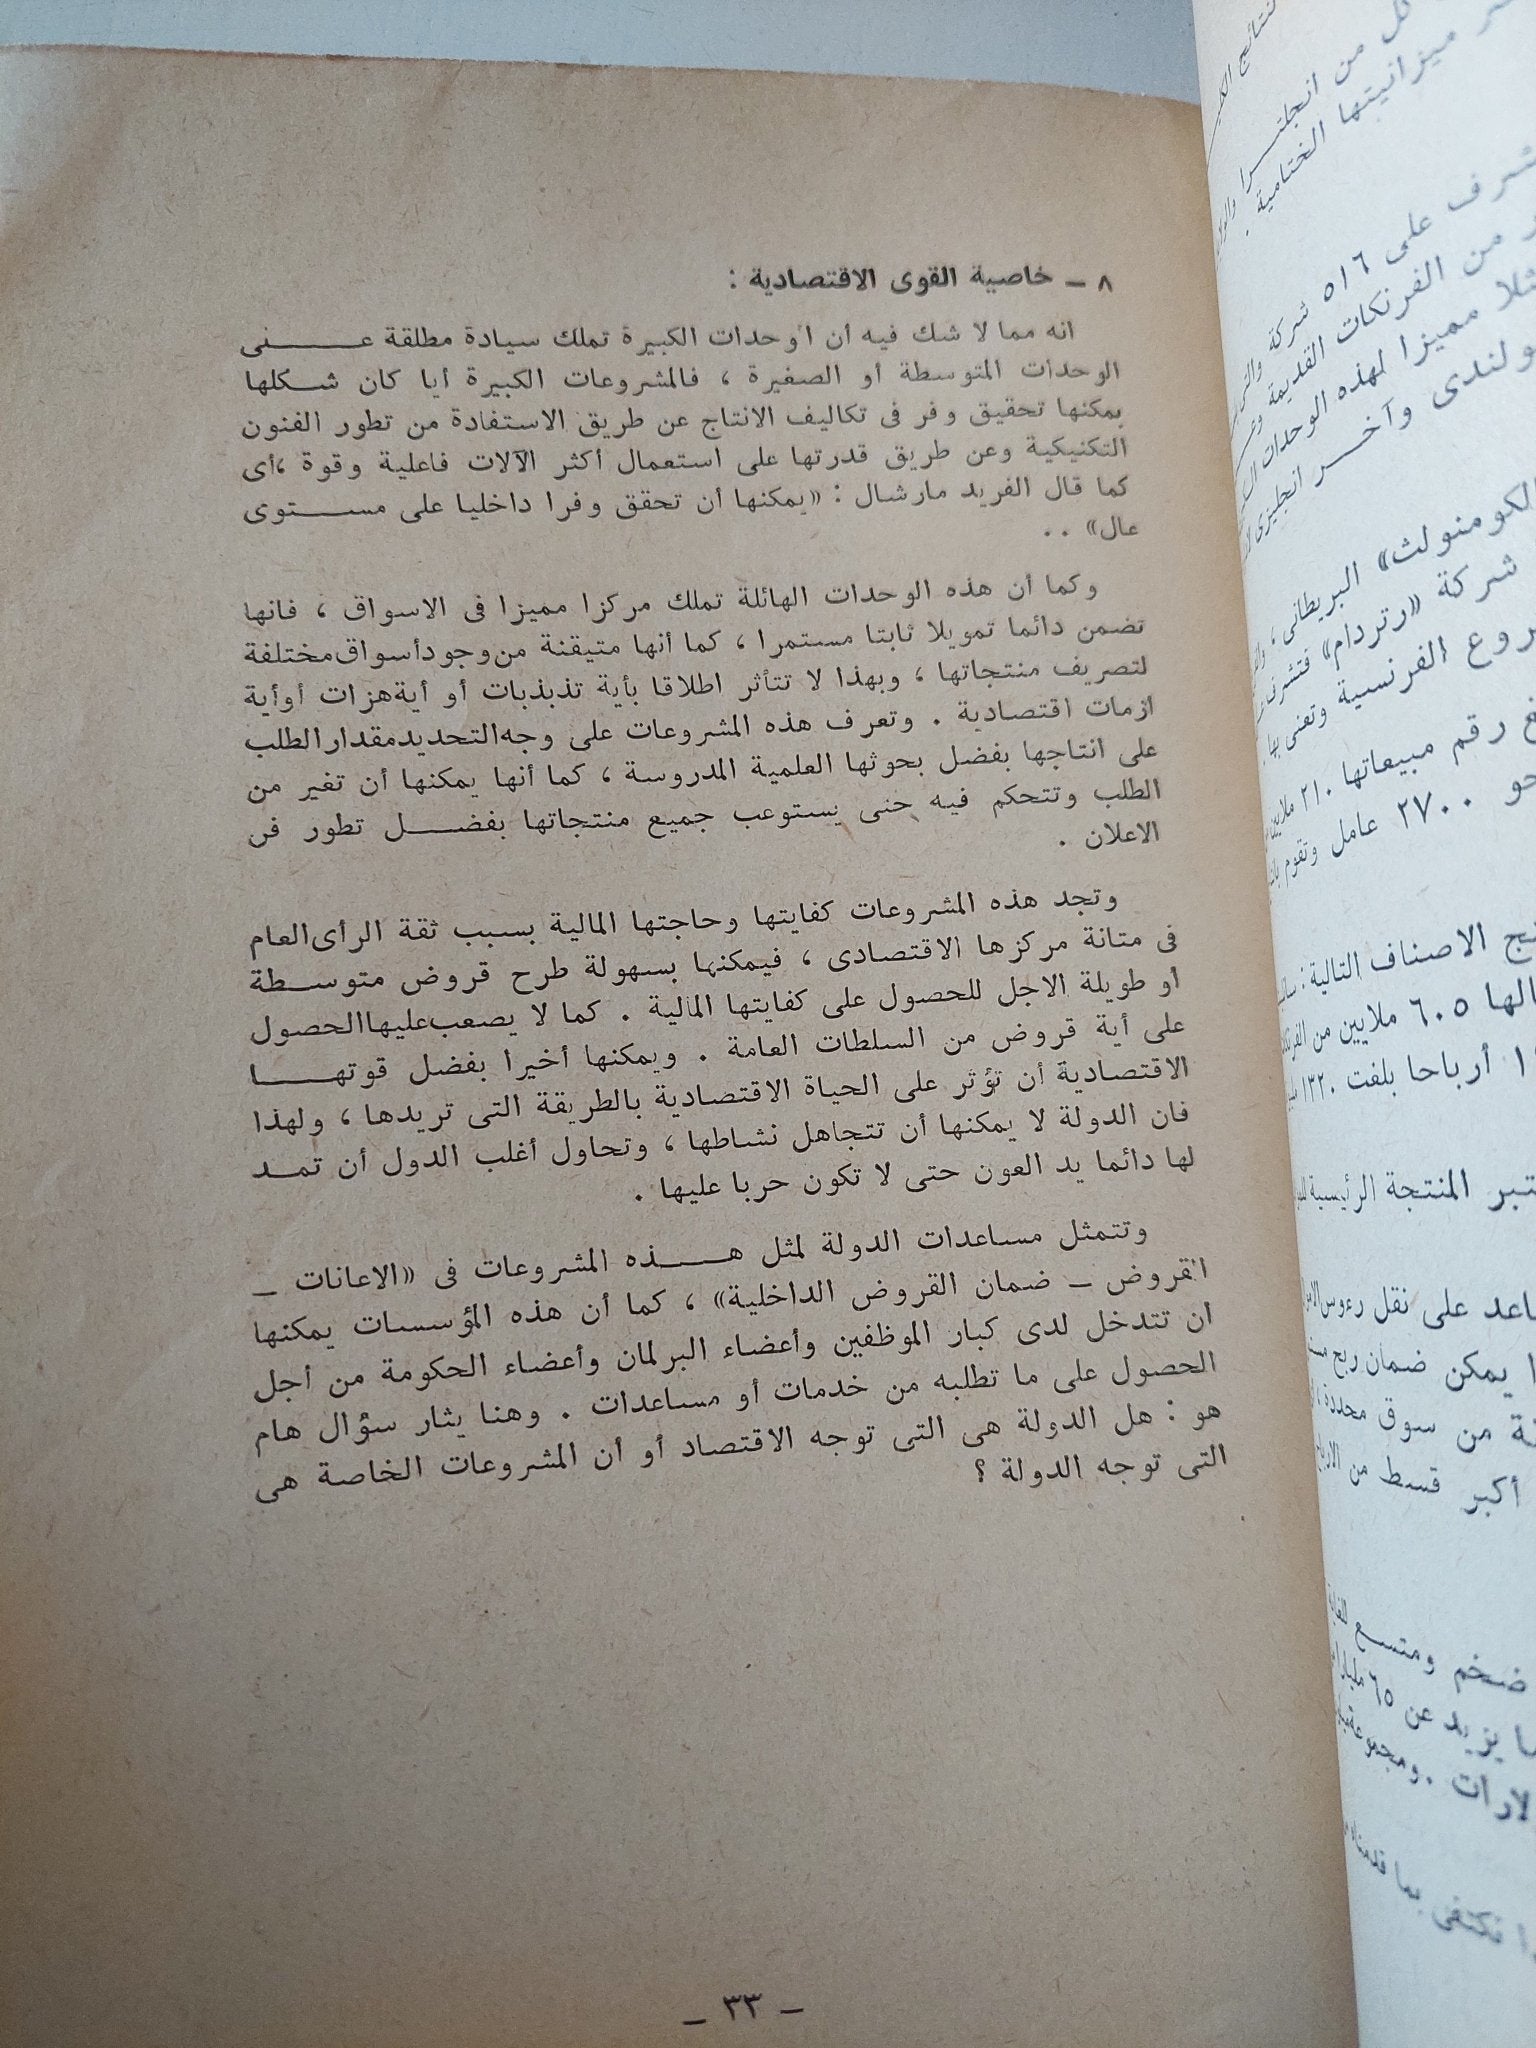 ٨ ـ خاصية القوى الاقتصادية :
انه مما لا شك فيه أن اوحدات الكبيرة تملك سيادة مطلقة عــــلى
الوحدات المتوسطة أو الصغيرة ، فالمشروعات الكبيرة أيا كان شكلها
يمكنها تحقيق وفر فى تكاليف الانتاج عن طريق الاستفادة من تطور الفنون
التكنيكية وعن طريق قدرتها على استعمال أكثر الآلات فاعلية وقوة ،أى
كما قال الفريد مارشال : «يمكنها أن تحقق وفرا داخليا على مستوى
عال» . .
وكما أن هذه الوحدات الهائلة تملك مركزا مميزا فى الاسواق ، فانها
تضمن دائما تمويلا ثابتا مستمرا ، كما أنها متيقنة من وجود أسواق مختلفة
لتصريف منتجاتها ، وبهذا لا تتأثر اطلاقا بأية تذبذبات أو أية هزات أو أية
ازمات اقتصادية . وتعرف هذه المشروعات على وجه التحديد مقدار الطلب
على انتاجها بفضل بحوثها العلمية المدروسة ، كما أنها يمكنها أن تغير من
الطلب وتتحكم فيه حتى يستوعب جميع منتجاتها بفضـــل تطور فن
الاعلان .
وتجد هذه المشروعات كفايتها وحاجتها المالية بسبب ثقة الرأى العام
فى متانة مركزها الاقتصادى ، فيمكنها بسهولة طرح قروض متوسطة
او طويلة الاجل للحصول على كفايتها المالية . كما لا يصعب عليها الحصول
على أية قروض من السلطات العامة . ويمكنها أخيرا بفضل قوتهـــا
الاقتصادية أن تؤثر على الحياة الاقتصادية بالطريقة التى تريدها ، ولهذا
فان الدولة لا يمكنها أن تتجاهل نشاطها ، وتحاول أغلب الدول أن تمد
لها دائما يد العون حتى لا تكون حربا عليها .
وتتمثل مساعدات الدولة لمثل هـــذه المشروعات فى «الاعانات ـ
القروض ـ ضمان القروض الداخلية» ، كما أن هذه المؤسسات يمكنها
ان تتدخل لدى كبار الموظفين وأعضاء البرلمان وأعضاء الحكومة من أجل
الحصول على ما تطلبه من خدمات أو مساعدات . وهنا يثار سؤال هام
هو : هل الدولة هى التى توجه الاقتصاد أو أن المشروعات الخاصة هى
التى توجه الدولة ؟
ـ ٣٣ ـ
كل من انجلتـــرا
ميزانيتها الختامية .
على ٥١٦ شركة
من الفرنكات القديمة
مميزا لهذه الوحدات
وآخـــر انجليزى
الكومنولث» البريطانى ،
شركة «رتردام» فتشرف
الفرنسية وتعنى بها
رقم مبيعاتها ٢١٠ ملايين
٢٧٠٠ عامل وتقوم
الاصناف التالية :
٦٠٥ ملايين من
أرباحا بلغت ١٣٢٠
المنتجة الرئيسية
على نقل رءوس
يمكن ضمان ربح
من سوق محددة
أكبر قسط من
ضخم ومتسع
يزيد عن ٦٥